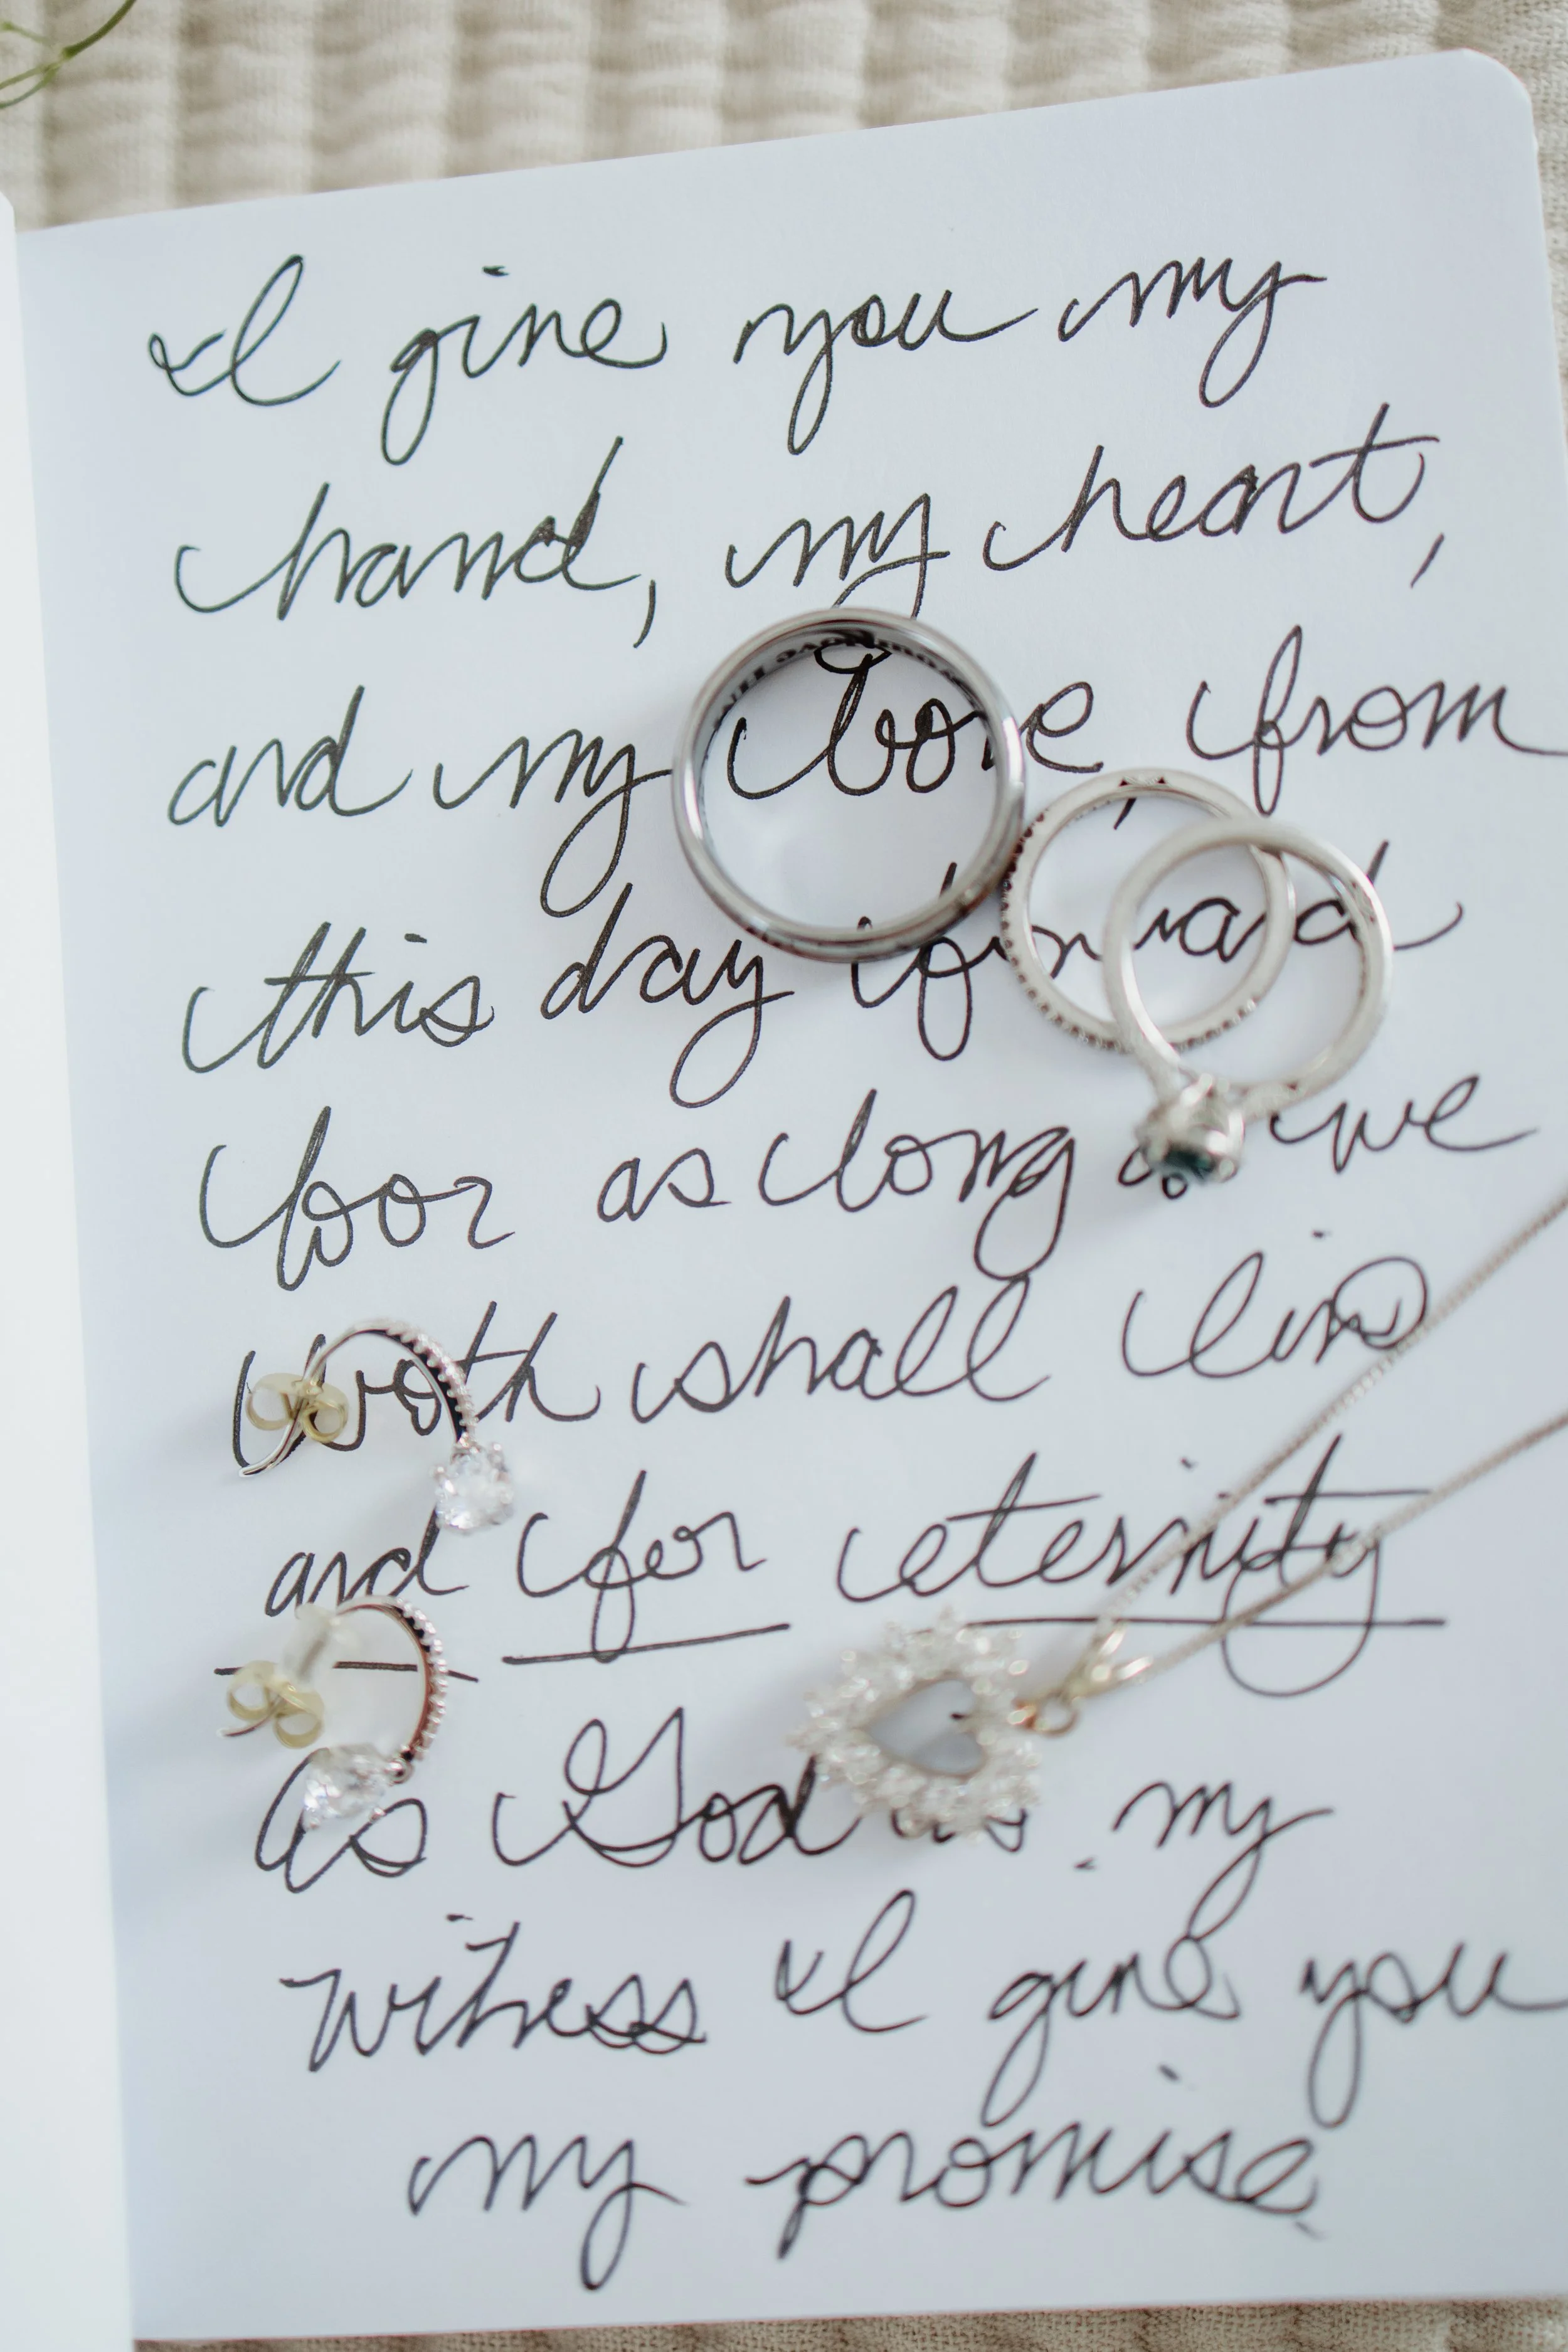 I give you my
hand, my heart,
and my love, from
this day forward
for as long as we
both shall live
and for eternity
As God as my
witness I give you
my promise.